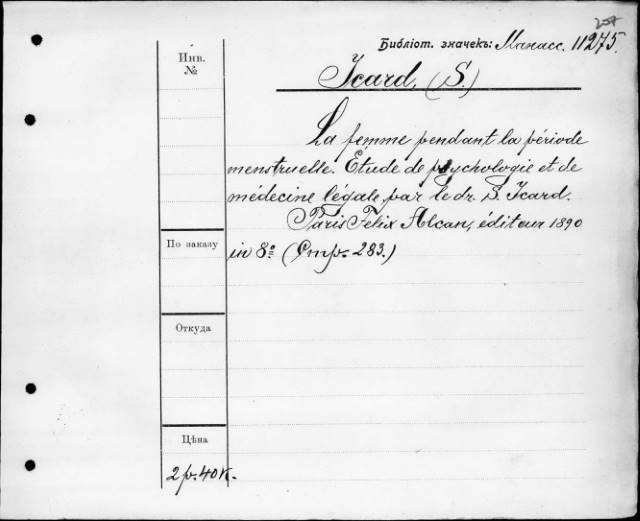 257
Библіот. значекъ: Манасс. 11275.
Инв.
№
Icard, (S.)
La femme pendant la période
menstruelle. Étude de psychologie et de
médecine légale par le dr. S. Icard.
Paris Felix Alcan, éditeur 1890
in 8º (Стр. 283.)
По заказу
Откуда
Цѣна
2 р. 40 к.